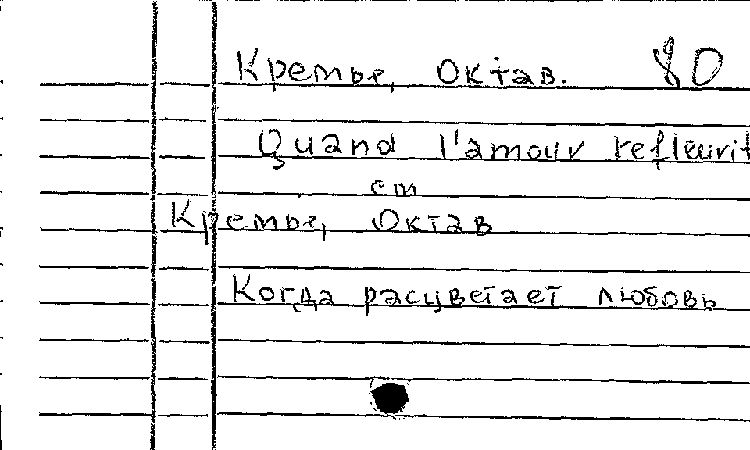 Кремье, Октав. 80
Quand l'amour refleurit
cm
Кремье, Октав
Когда расцветает любовь